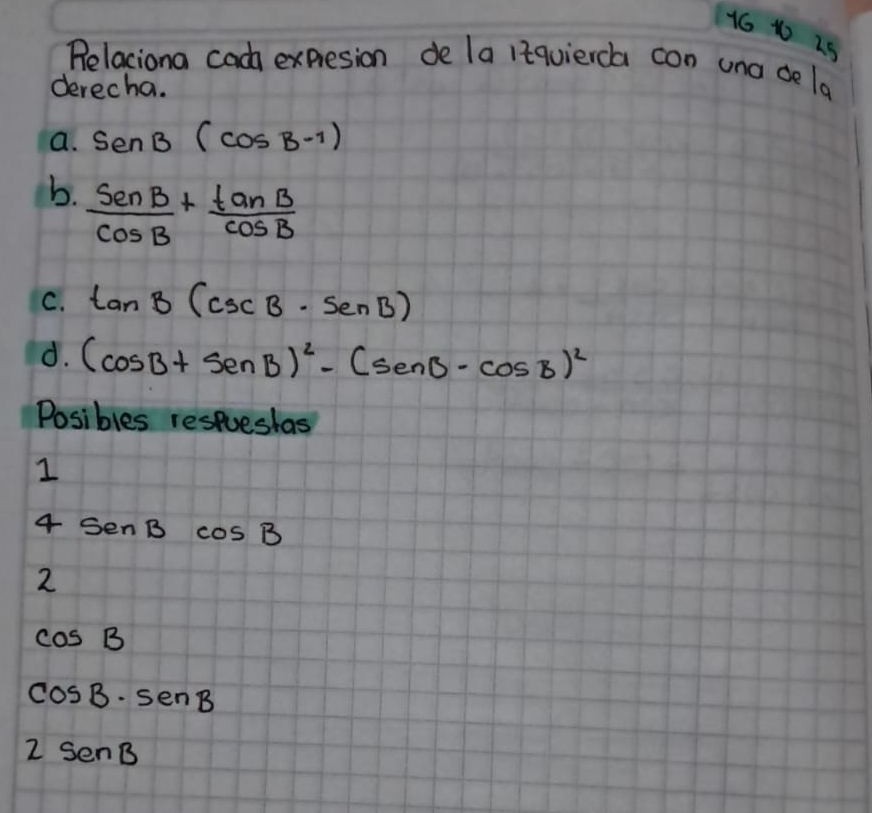 16 10 25
Relaciona cada expresion de la izquierda con una de la
derecha.
a. Sen B (cos B-1)
b. Sen B / cos B + tan B / cos B
c. tan B (csc B - Sen B)
d. (cos B + Sen B)² - (sen B - cos B)²
Posibles respuestas
1
4 Sen B cos B
2
cos B
cos B · sen B
2 Sen B